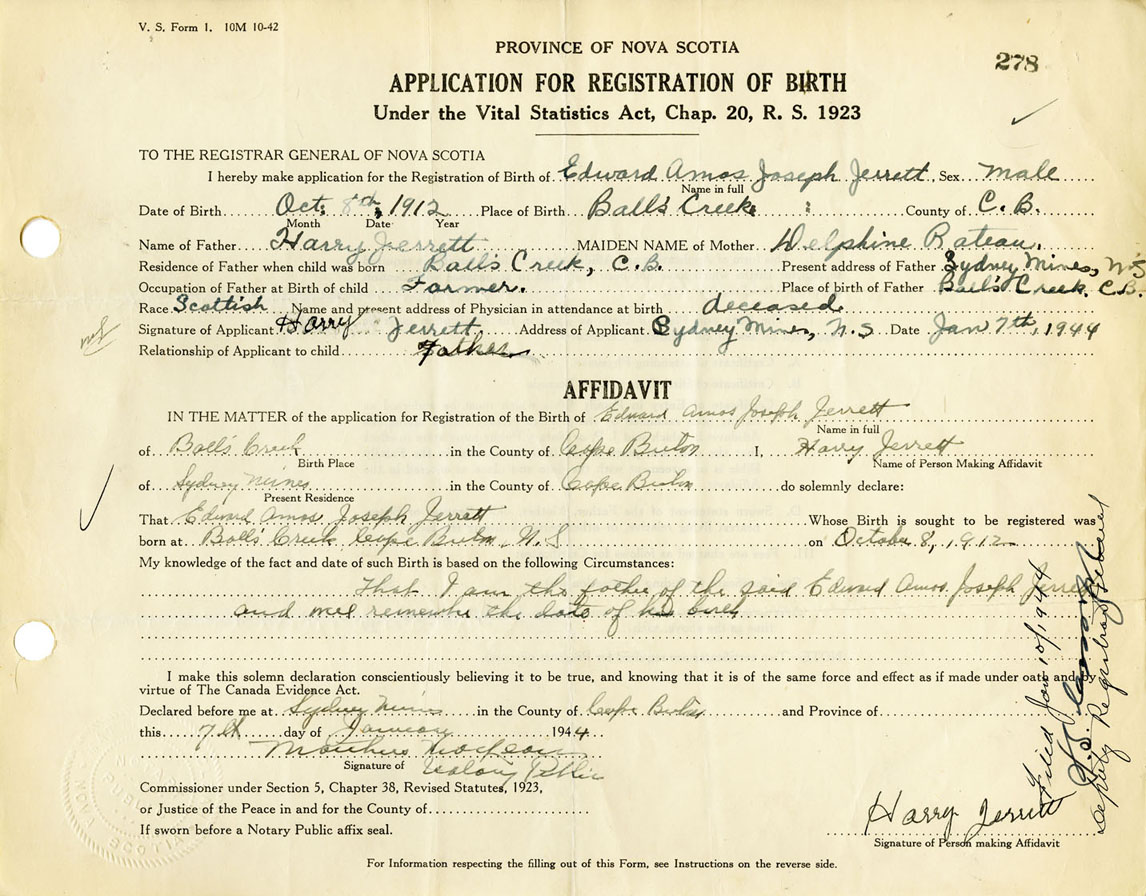 V. S. Form 1. 10M 10-42
PROVINCE OF NOVA SCOTIA
278
APPLICATION FOR REGISTRATION OF BIRTH
Under the Vital Statistics Act, Chap. 20, R. S. 1923
TO THE REGISTRAR GENERAL OF NOVA SCOTIA
I hereby make application for the Registration of Birth of Edward Amos Joseph Jerrett, Sex Male
Name in full
Date of Birth Oct. 8th, 1912 Place of Birth Ball's Creek County of C. B.
Month Date Year
Name of Father Harry Jerrett MAIDEN NAME of Mother Delphine Rateau.
Residence of Father when child was born Ball's Creek, C.B. Present address of Father Sydney Mines, N.S
Occupation of Father at Birth of child Farmer. Place of birth of Father Ball's Creek, C.B.
Race Scottish Name and present address of Physician in attendance at birth deceased
Signature of Applicant Harry Jerrett Address of Applicant Sydney Mines, N.S Date Jan 7th, 1944
Relationship of Applicant to child Father
AFFIDAVIT
IN THE MATTER of the application for Registration of the Birth of Edward Amos Joseph Jerrett
Name in full
of Ball's Creek in the County of Cape Breton I, Harry Jerrett
Birth Place Name of Person Making Affidavit
of Sydney Mines in the County of Cape Breton do solemnly declare:
Present Residence
That Edward Amos Joseph Jerrett Whose Birth is sought to be registered was
born at Ball's Creek Cape Breton, N.S on October 8, 1912
My knowledge of the fact and date of such Birth is based on the following Circumstances:
That I am the father of the said Edward Amos Joseph Jerrett
and well remember the date of his birth
I make this solemn declaration conscientiously believing it to be true, and knowing that it is of the same force and effect as if made under oath and by
virtue of The Canada Evidence Act.
Declared before me at Sydney Mines in the County of Cape Breton and Province of
this 7th day of January 1944
Signature of Notary Public
Commissioner under Section 5, Chapter 38, Revised Statutes, 1923,
or Justice of the Peace in and for the County of
If sworn before a Notary Public affix seal.
Harry Jerrett
Signature of Person making Affidavit
For Information respecting the filling out of this Form, see Instructions on the reverse side.
Filed Jan 10/1944
Deputy Registrar General